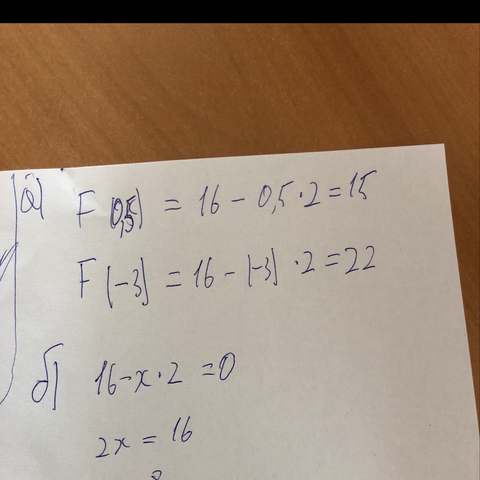 а) F(0,5) = 16 - 0,5 · 2 = 15
F(-3) = 16 - (-3) · 2 = 22
б) 16 - x · 2 = 0
2x = 16